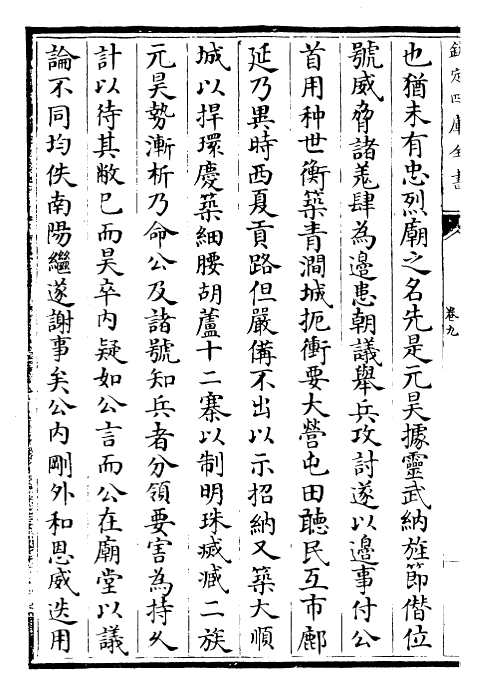 欽定四庫全書
卷九
也猶未有忠烈廟之名先是元昊據靈武納旌節僭位
號威脅諸羌肆為邊患朝議舉兵攻討遂以邊事付公
首用种世衡築青澗城扼衝要大營屯田聽民互市鄜
延乃異時西夏貢路但嚴備不出以示招納又築大順
城以捍環慶築細腰胡蘆十二寨以制明珠㓕臧二族
元昊勢漸析乃命公及諸號知兵者分領要害為持乆
計以待其敝巳而昊卒内疑如公言而公在廟堂以議
論不同均佚南陽繼遂謝事矣公内剛外和恩威迭用